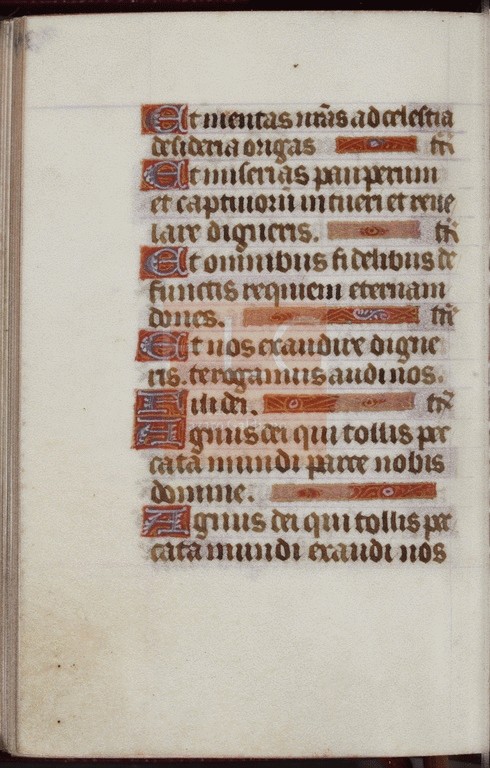 Et mentas nr̃as ad celestia
desideria origas tr̃
Et miserias pauperum
et captiuorũ intueri et reue
lare digneris. tr̃
Et omnibus fidelibus de
functis requiem eternam
dones. tr̃
Et nos exaudire digne
ris. te rogamus audi nos.
Fili dei. tr̃
Agnus dei qui tollis pec
cata mundi parce nobis
domine.
Agnus dei qui tollis pec
cata mundi exaudi nos